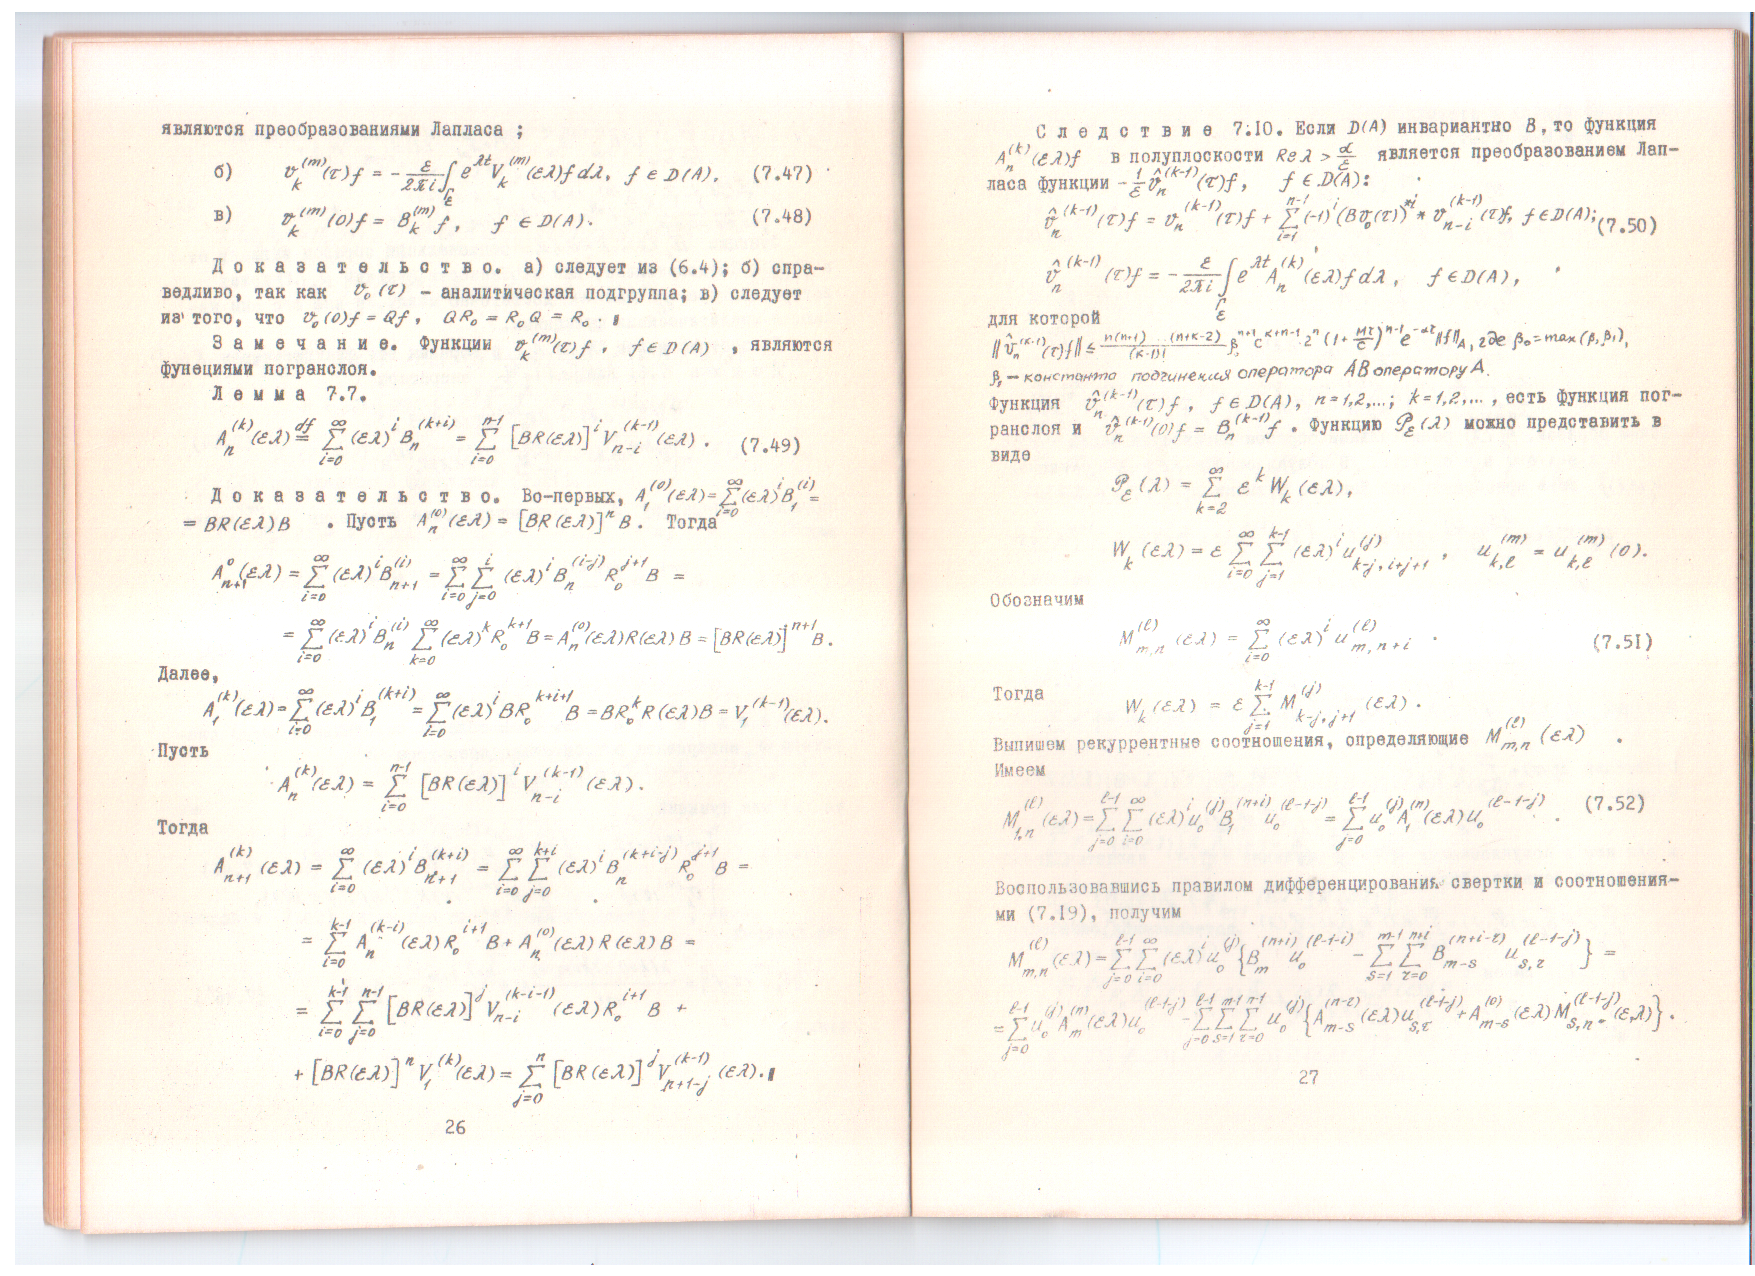 являются преобразованиями Лапласа ;
б) v_k^{(m)}(τ)f = - ε/2πi ∫_{Γ_ε} e^{λt} V_k^{(m)}(ελ)f dλ, f ∈ D(A). (7.47)
в) v_k^{(m)}(0)f = B_k^{(m)} f, f ∈ D(A). (7.48)
Доказательство. а) следует из (6.4); б) спра-
ведливо, так как v_0(τ) – аналитическая подгруппа; в) следует
из того, что v_0(0)f = Qf, QR_0 = R_0Q = R_0.
Замечание. Функции v_k^{(m)}(τ)f, f ∈ D(A) , являются
фунециями погранслоя.
Лемма 7.7.
A_n^{(k)}(ελ) \stackrel{df}{=} Σ_{i=0}^{∞} (ελ)^i B_n^{(k+i)} = Σ_{i=0}^{n-1} [BR(ελ)]^i V_{n-i}^{(k-1)}(ελ). (7.49)
Доказательство. Во-первых, A_1^{(0)}(ελ) = Σ_{i=0}^{∞} (ελ)^i B_1^{(i)} =
= BR(ελ)B . Пусть A_n^{(0)}(ελ) = [BR(ελ)]^n B. Тогда
A_{n+1}^{0}(ελ) = Σ_{i=0}^{∞} (ελ)^i B_{n+1}^{(i)} = Σ_{i=0}^{∞} Σ_{j=0}^{i} (ελ)^i B_n^{(i-j)} R_0^{j+1} B =
= Σ_{i=0}^{∞} (ελ)^i B_n^{(i)} Σ_{k=0}^{∞} (ελ)^k R_0^{k+1} B = A_n^{(0)}(ελ)R(ελ)B = [BR(ελ)]^{n+1} B.
Далее,
A_1^{(k)}(ελ) = Σ_{i=0}^{∞} (ελ)^i B_1^{(k+i)} = Σ_{i=0}^{∞} (ελ)^i BR_0^{k+i+1} B = BR_0^k R(ελ)B = V_1^{(k-1)}(ελ).
Пусть
A_n^{(k)}(ελ) = Σ_{i=0}^{n-1} [BR(ελ)]^i V_{n-i}^{(k-1)}(ελ).
Тогда
A_{n+1}^{(k)}(ελ) = Σ_{i=0}^{∞} (ελ)^i B_{n+1}^{(k+i)} = Σ_{i=0}^{∞} Σ_{j=0}^{k+i} (ελ)^i B_n^{(k+i-j)} R_0^{j+1} B =
= Σ_{i=0}^{k-1} A_n^{(k-i)}(ελ) R_0^{i+1} B + A_n^{(0)}(ελ)R(ελ)B =
= Σ_{i=0}^{k-1} Σ_{j=0}^{n-1} [BR(ελ)]^j V_{n-i}^{(k-i-1)}(ελ) R_0^{i+1} B +
+ [BR(ελ)]^n V_1^{(k)}(ελ) = Σ_{j=0}^{n} [BR(ελ)]^j V_{n+1-j}^{(k-1)}(ελ).
26
Следствие 7.10. Если D(A) инвариантно B, то функция
A_n^{(k)}(ελ)f в полуплоскости Re λ > α/ε является преобразованием Лап-
ласа функции - 1/ε v̂_n^{(k-1)}(τ)f, f ∈ D(A):
v̂_n^{(k-1)}(τ)f = v_n^{(k-1)}(τ)f + Σ_{i=1}^{n-1} (-1)^i (Bv_0(τ))^{*i} * v_{n-i}^{(k-1)}(τ)f, f ∈ D(A); (7.50)
v̂_n^{(k-1)}(τ)f = - ε/2πi ∫_{Γ_ε} e^{λt} A_n^{(k)}(ελ)f dλ, f ∈ D(A),
для которой
‖v̂_n^{(k-1)}(τ)f‖ ≤ n(n+1)...(n+k-2)/(k-1)! β_0^{n+1} c^{k+n-1} 2^n (1 + Mτ/c)^{n-1} e^{-ατ} ‖f‖_A, где β_0 = max(β, β_1),
β_1 – константа подчинения оператора AB оператору A.
Функция v̂_n^{(k-1)}(τ)f, f ∈ D(A), n = 1,2,...; k = 1,2,..., есть функция пог-
ранслоя и v̂_n^{(k-1)}(0)f = B_n^{(k-1)}f . Функцию 𝒫_ε(λ) можно представить в
виде
𝒫_ε(λ) = Σ_{k=2}^{∞} ε^k W_k(ελ),
W_k(ελ) = ε Σ_{i=0}^{∞} Σ_{j=1}^{k-1} (ελ)^i u_{k-j,i+j+1}^{(j)} , u_{k,ℓ}^{(m)} = u_{k,ℓ}^{(m)}(0).
Обозначим
M_{m,n}^{(ℓ)}(ελ) = Σ_{i=0}^{∞} (ελ)^i u_{m,n+i}^{(ℓ)} . (7.51)
Тогда W_k(ελ) = ε Σ_{j=1}^{k-1} M_{k-j,j+1}^{(j)}(ελ).
Выпишем рекуррентные соотношения, определяющие M_{m,n}^{(ℓ)}(ελ) .
Имеем
M_{1,n}^{(ℓ)}(ελ) = Σ_{j=0}^{ℓ-1} Σ_{i=0}^{∞} (ελ)^i u_0^{(j)} B_1^{(n+i)} u_0^{(ℓ-1-j)} = Σ_{j=0}^{ℓ-1} u_0^{(j)} A_1^{(n)}(ελ) u_0^{(ℓ-1-j)} . (7.52)
Воспользовавшись правилом дифференцирования свертки и соотношения-
ми (7.19), получим
M_{m,n}^{(ℓ)}(ελ) = Σ_{j=0}^{ℓ-1} Σ_{i=0}^{∞} (ελ)^i u_0^{(j)} {B_m^{(n+i)} u_0^{(ℓ-1-i)} - Σ_{s=1}^{m-1} Σ_{τ=0}^{n+i} B_{m-s}^{(n+i-τ)} u_{s,τ}^{(ℓ-1-j)}} =
= Σ_{j=0}^{ℓ-1} u_0^{(j)} A_m^{(n)}(ελ) u_0^{(ℓ-1-j)} - Σ_{j=0}^{ℓ-1} Σ_{s=1}^{m-1} Σ_{τ=0}^{n-1} u_0^{(j)} {A_{m-s}^{(n-τ)}(ελ) u_{s,τ}^{(ℓ-1-j)} + A_{m-s}^{(0)}(ελ) M_{s,n}^{(ℓ-1-j)}(ε,λ)}.
27